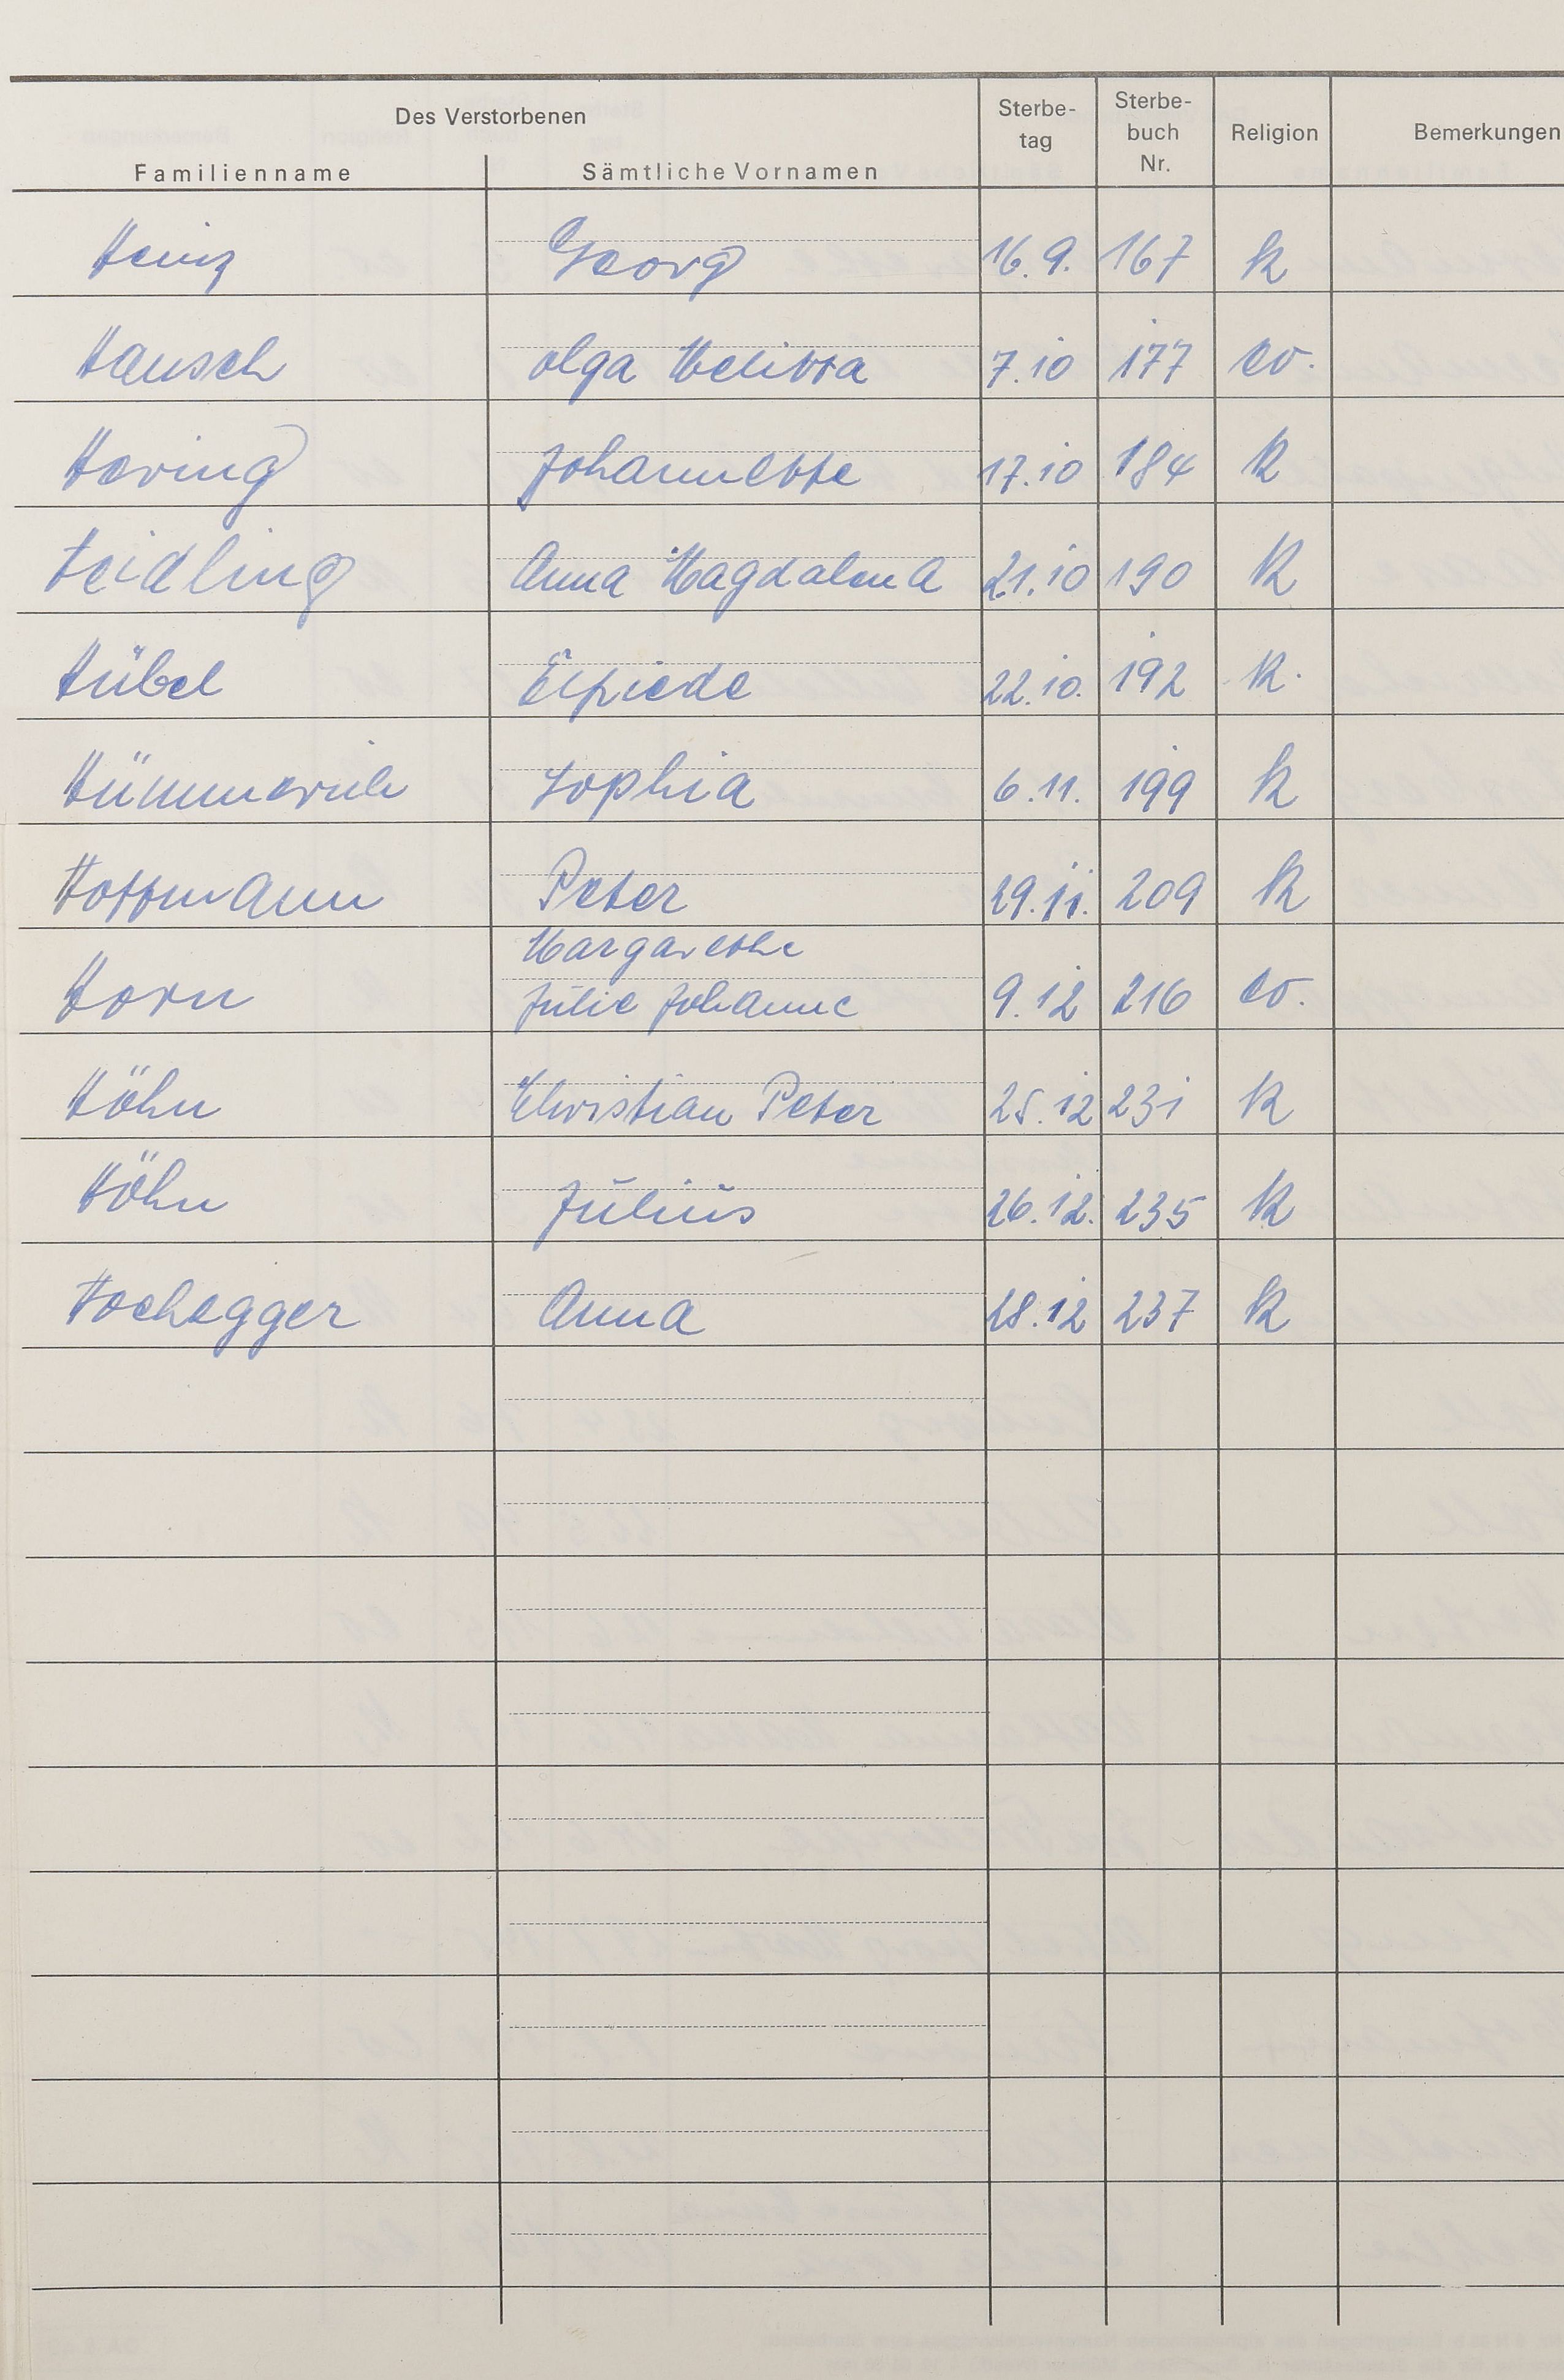 Des Verstorbenen
Familienname Sämtliche Vornamen Sterbe-tag Sterbe-buch Nr. Religion Bemerkungen
Heinz Georg 16.9. 167 k
Hausch Olga Melitta 7.10 177 ev.
Hering Johannette 17.10 184 k
Heidling Anna Magdalena 21.10 190 k
Hübel 22.10. 192 k.
Hümmerich Sophia 6.11. 199 k
Hoffmann Peter 29.11. 209 k
Margarethe
Horn Julie Johanne 9.12 216 ev.
Höhn Christian Peter 25.12 231 k
Höhn Julius 26.12. 235 k
Hochegger Anna 28.12 237 k